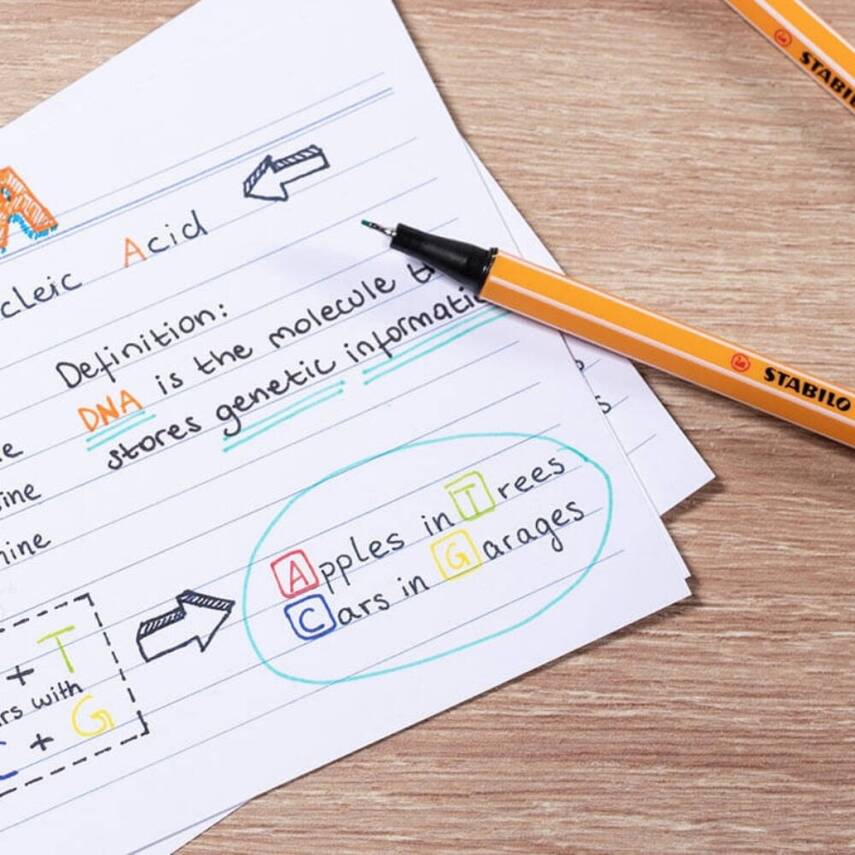 A
cleic Acid
Definition:
DNA is the molecule
stores genetic informatio
ne
sine
nine
Apples in Trees
Cars in Garages
+ T
rs with
C + G
STABILO
STABILO